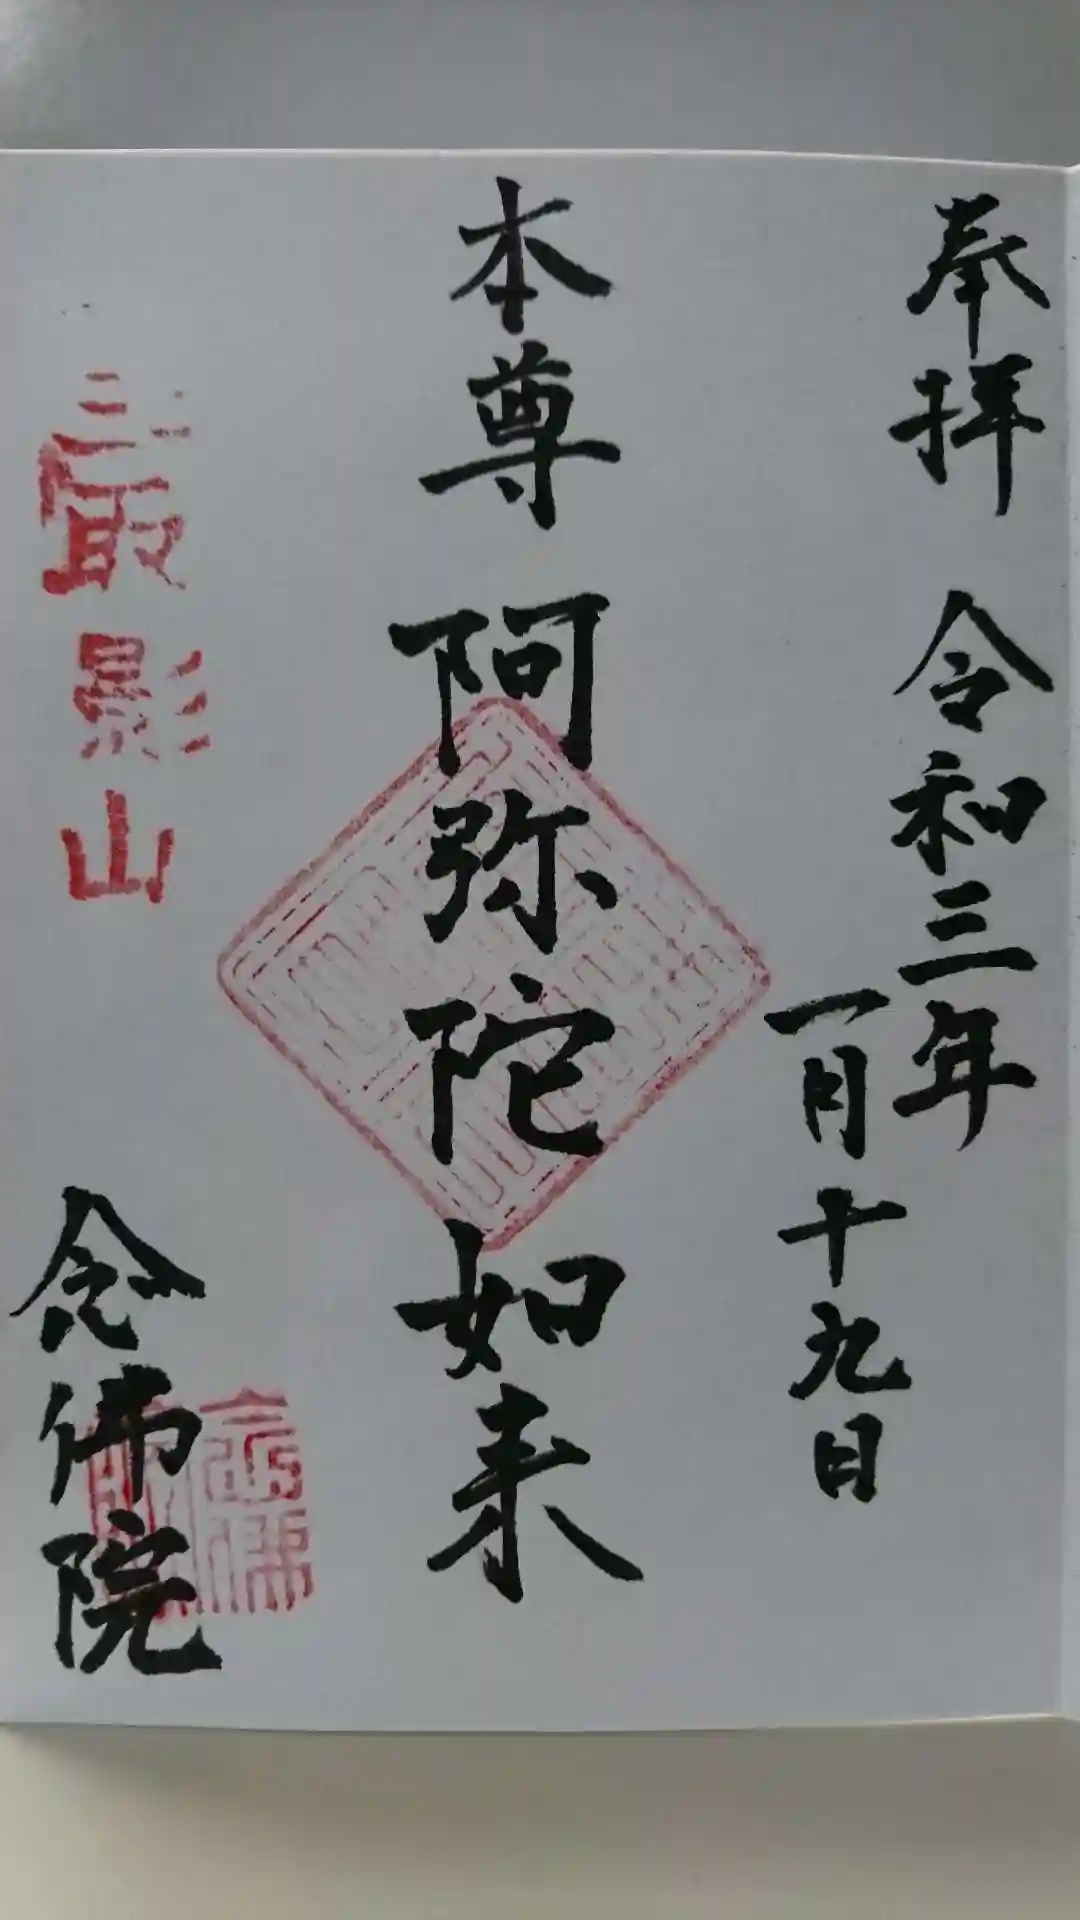 奉拝 令和三年
一月十九日
本尊 阿弥陀如来
巌影山
念佛院